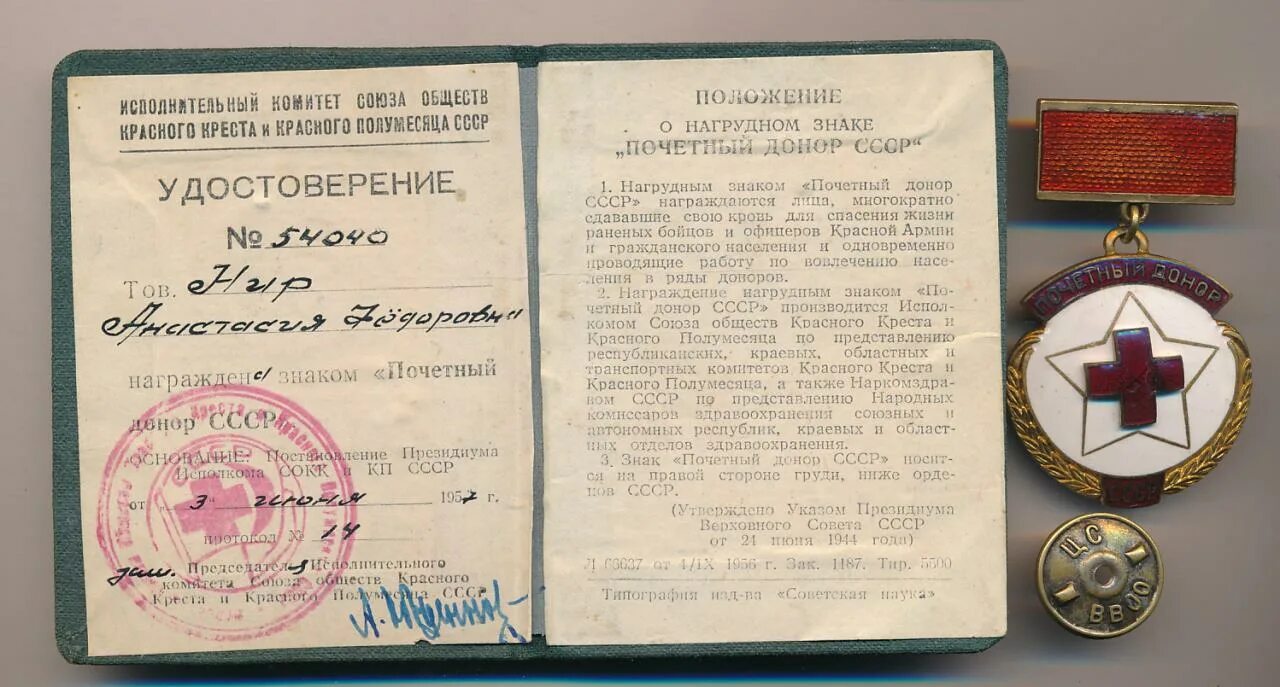 ИСПОЛНИТЕЛЬНЫЙ КОМИТЕТ СОЮЗА ОБЩЕСТВ
КРАСНОГО КРЕСТА и КРАСНОГО ПОЛУМЕСЯЦА СССР
УДОСТОВЕРЕНИЕ
№ 54040
Тов. Нир
Анастасия Фёдоровн
награждена знаком «Почетный
донор СССР»
ОСНОВАНИЕ: Постановление Президиума
Исполкома СОКК и КП СССР
от „3" июня 1957 г.
протокол № 14
зам. Председателя Исполнительного
комитета Союза обществ Красного
Креста и Красного Полумесяца СССР
ПОЛОЖЕНИЕ
О НАГРУДНОМ ЗНАКЕ
„ПОЧЕТНЫЙ ДОНОР СССР“
1. Нагрудным знаком «Почетный донор
СССР» награждаются лица, многократно
сдававшие свою кровь для спасения жизни
раненых бойцов и офицеров Красной Армии
и гражданского населения и одновременно
проводящие работу по вовлечению насе-
ления в ряды доноров.
2. Награждение нагрудным знаком «По-
четный донор СССР» производится Испол-
комом Союза обществ Красного Креста и
Красного Полумесяца по представлению
республиканских, краевых, областных и
транспортных комитетов Красного Креста и
Красного Полумесяца, а также Наркомздра-
вом СССР по представлению Народных
комиссаров здравоохранения союзных и
автономных республик, краевых и област-
ных отделов здравоохранения.
3. Знак «Почетный донор СССР» носит-
ся на правой стороне груди, ниже орде-
нов СССР.
(Утверждено Указом Президиума
Верховного Совета СССР
от 24 июня 1944 года)
Л 66637 от 4/IX 1956 г. Зак. 1187. Тир. 5500
Типография изд-ва «Советская наука»
ПОЧЕТНЫЙ ДОНОР
СССР
ЦС
ВВОО